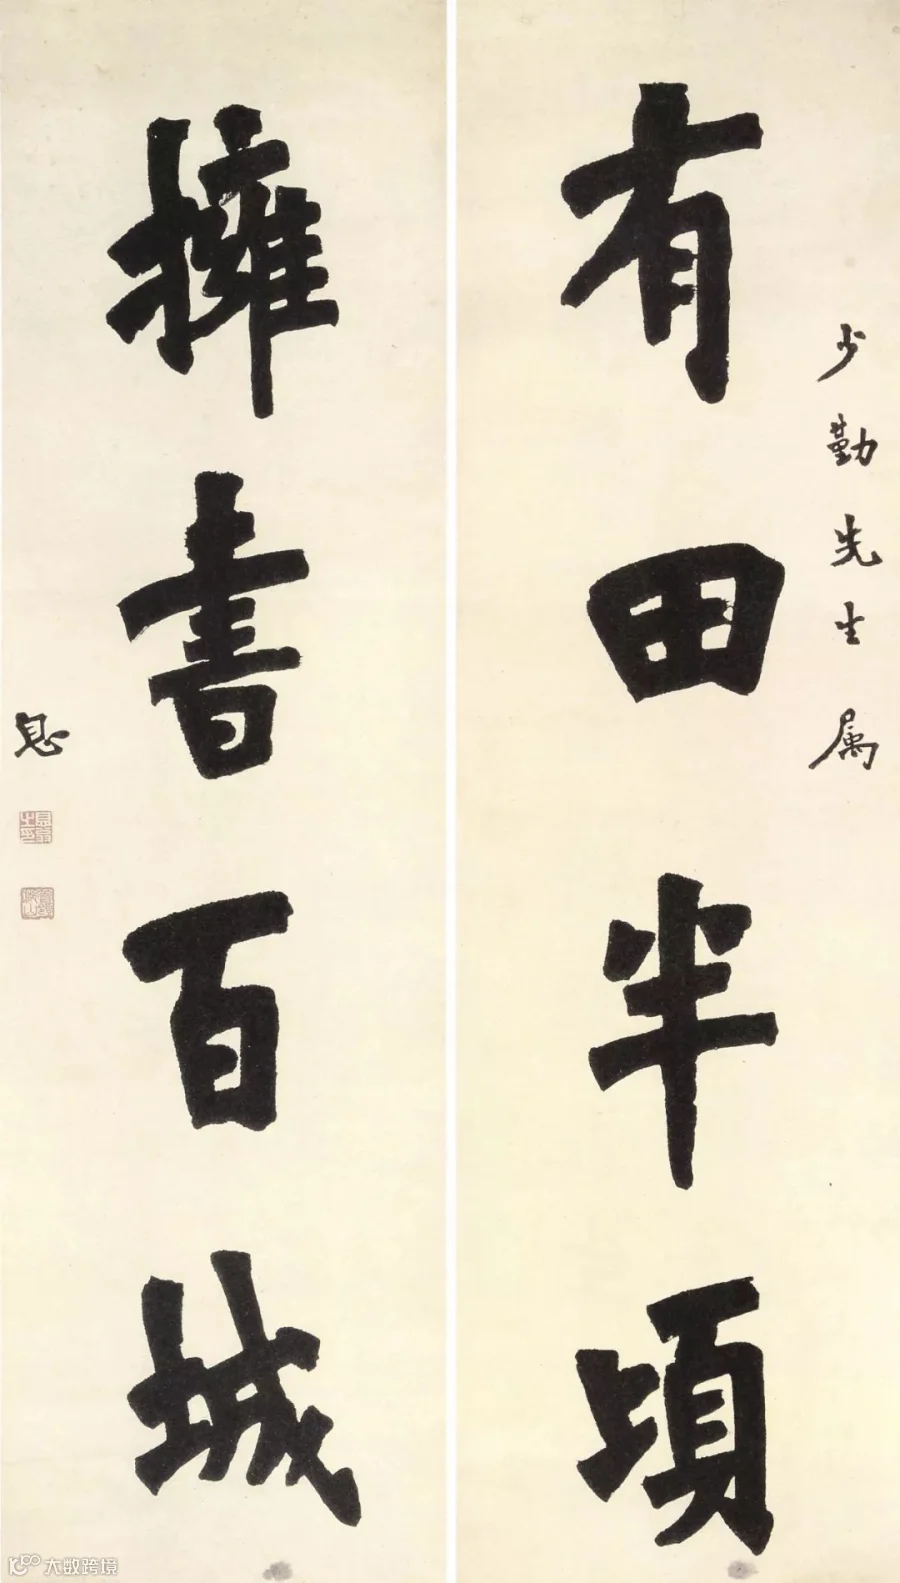 少勤先生属
有田半頃
擁書百城
息
大数跨境